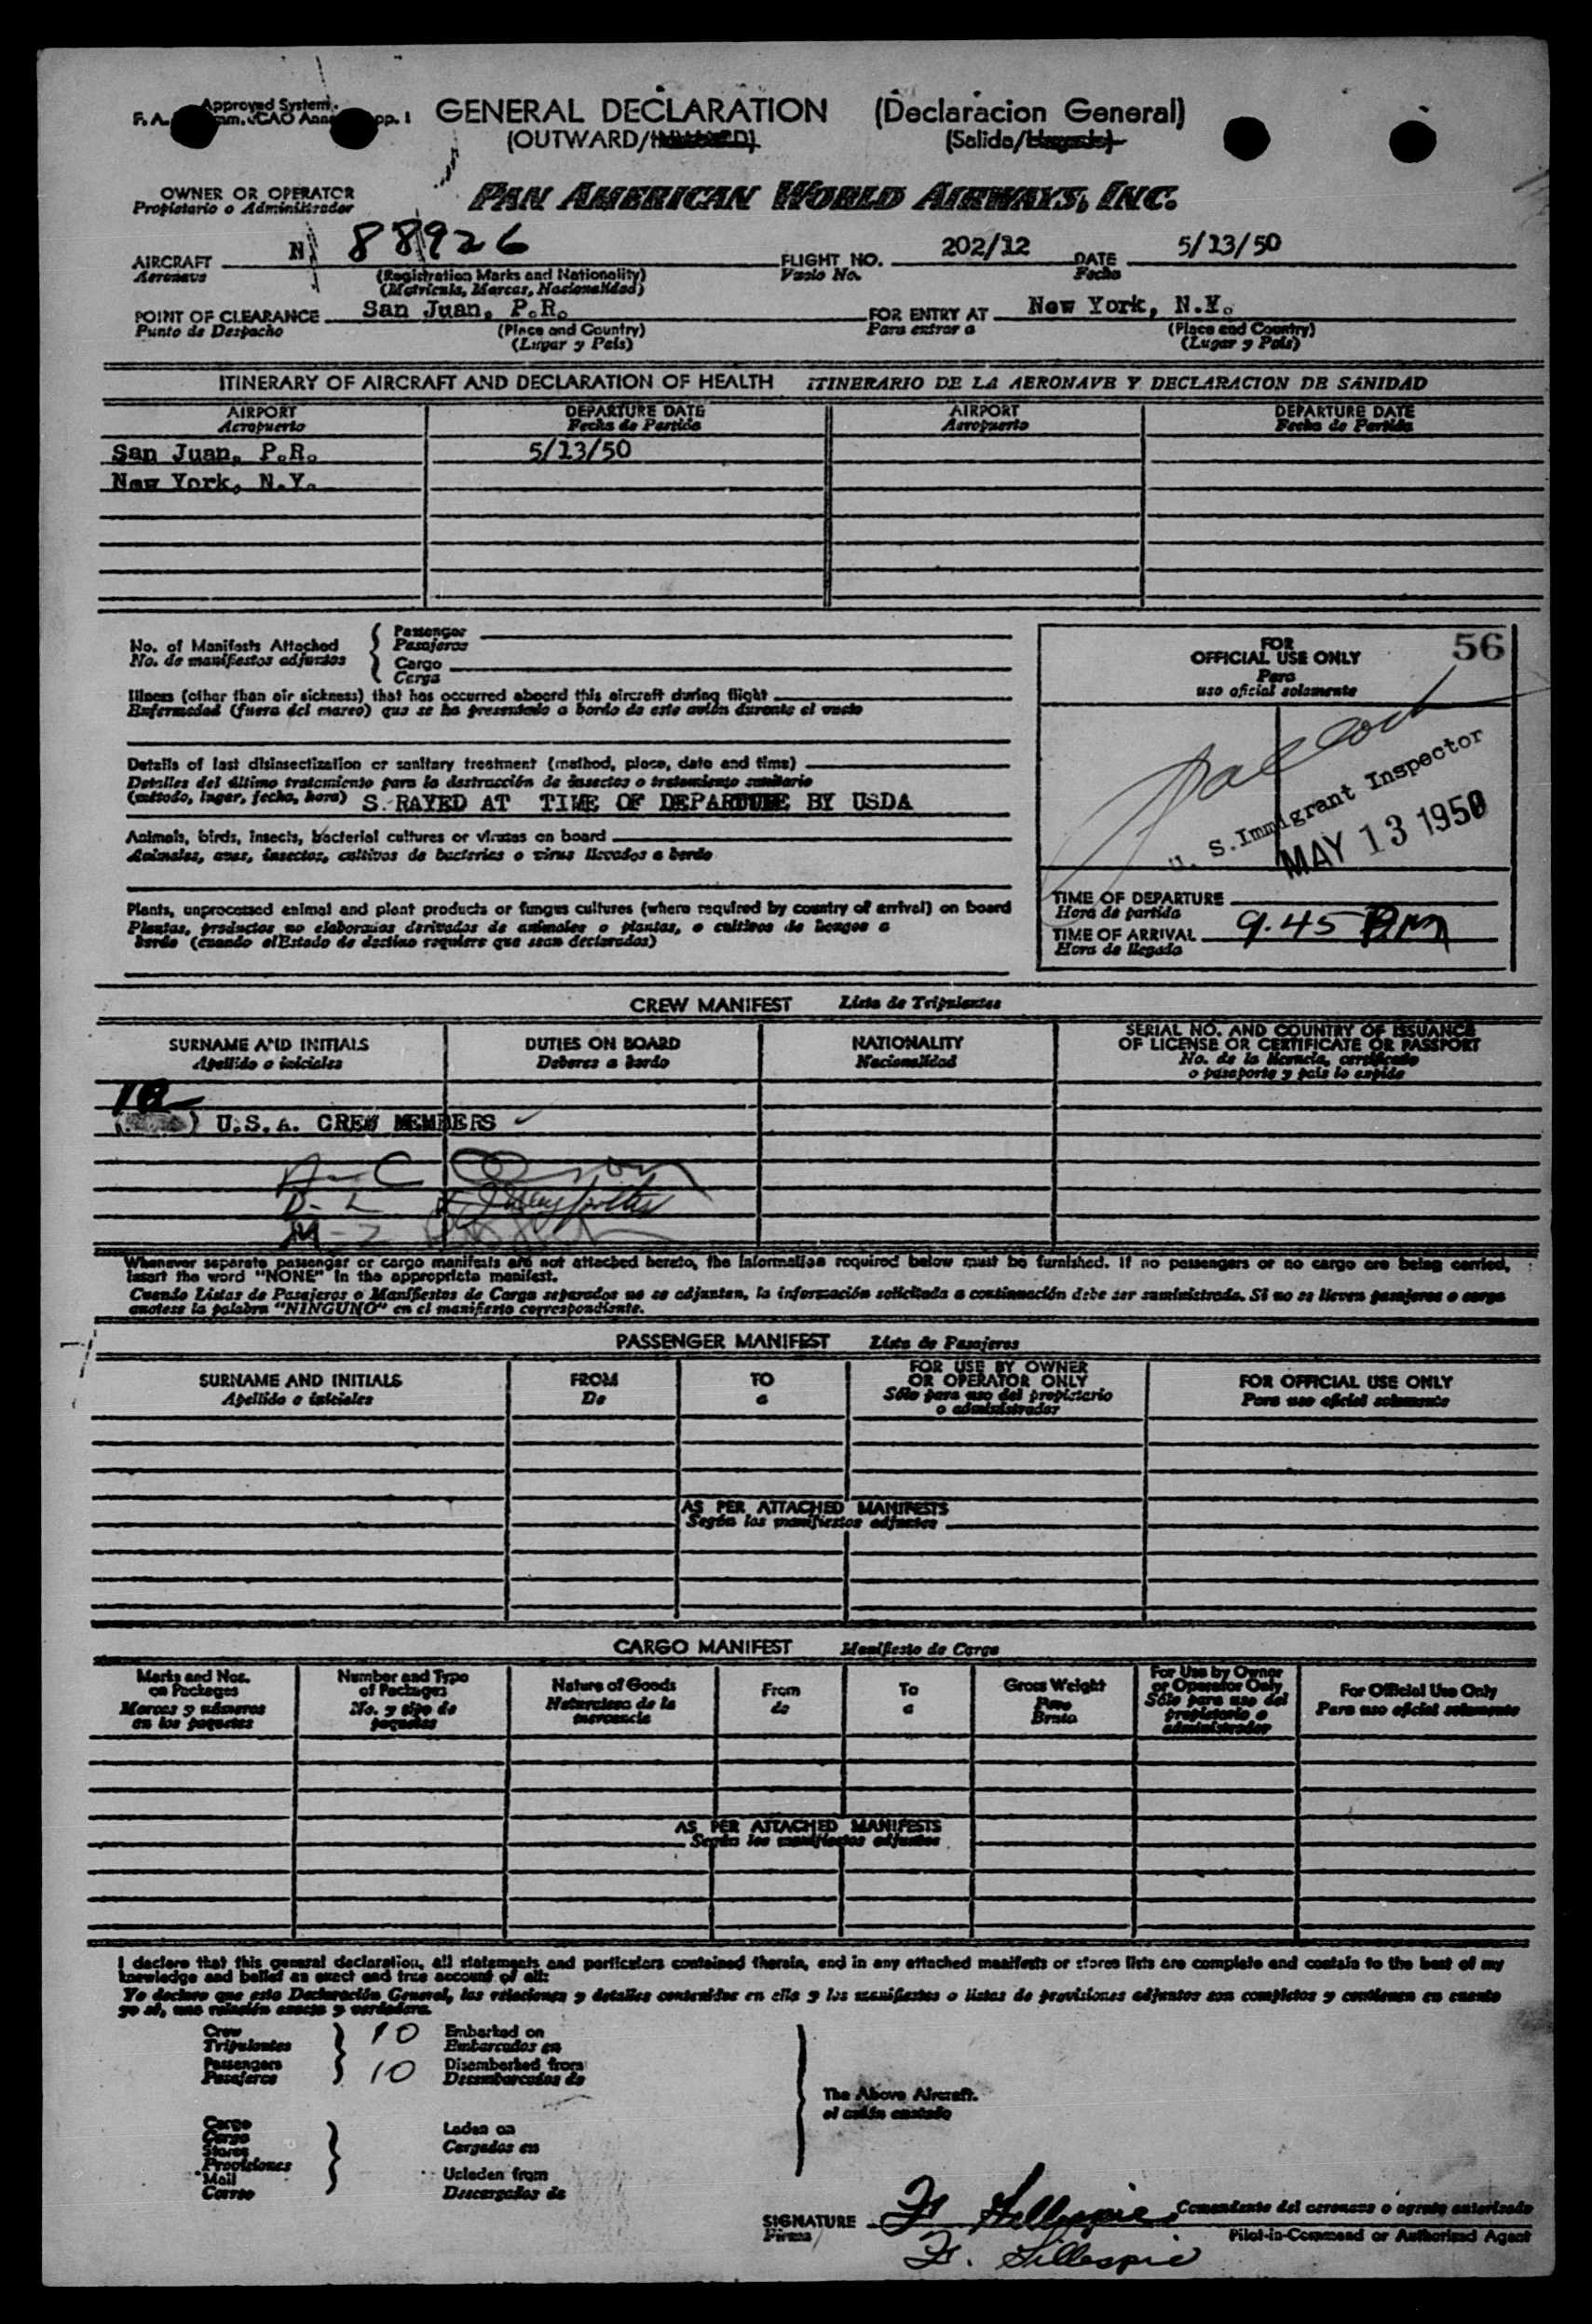 Approved System
F. A. mm. ICAO Anne pp. 1
GENERAL DECLARATION (Declaracion General)
(OUTWARD/INWARD) (Salida/Llegada)
OWNER OR OPERATOR
Propietario o Administrador
PAN AMERICAN WORLD AIRWAYS, INC.
AIRCRAFT N 88926 FLIGHT NO. 202/12 DATE 5/13/50
Aeronave (Registration Marks and Nationality) Vuelo No. Fecha
(Matricula, Marcas, Nacionalidad)
POINT OF CLEARANCE San Juan, P.R. FOR ENTRY AT New York, N.Y.
Punto de Despacho (Place and Country) Para entrar a (Place and Country)
(Lugar y Pais) (Lugar y Pais)
ITINERARY OF AIRCRAFT AND DECLARATION OF HEALTH ITINERARIO DE LA AERONAVE Y DECLARACION DE SANIDAD
AIRPORT DEPARTURE DATE AIRPORT DEPARTURE DATE
Aeropuerto Fecha de Partida Aeropuerto Fecha de Partida
San Juan, P.R. 5/13/50
New York, N.Y.
No. of Manifests Attached
No. de manifiestos adjuntos
Passenger
Pasajeros
Cargo
Carga
Illness (other than air sickness) that has occurred aboard this aircraft during flight
Enfermedad (fuera del mareo) que se ha presentado a bordo de este avión durante el vuelo
Details of last disinsectization or sanitary treatment (method, place, date and time)
Detalles del último tratamiento para la destrucción de insectos o tratamiento sanitario
(método, lugar, fecha, hora) S. RAYED AT TIME OF DEPARTURE BY USDA
Animals, birds, insects, bacterial cultures or viruses on board
Animales, aves, insectos, cultivos de bacterias o virus llevados a bordo
Plants, unprocessed animal and plant products or fungus cultures (where required by country of arrival) on board
Plantas, productos no elaborados derivados de animales o plantas, o cultivos de hongos a
bordo (cuando el Estado de destino requiere que sean declarados)
FOR 56
OFFICIAL USE ONLY
Para
uso oficial solamente
U. S. Immigrant Inspector
MAY 13 1950
TIME OF DEPARTURE
Hora de partida
TIME OF ARRIVAL 9.45 PM
Hora de llegada
CREW MANIFEST Lista de Tripulantes
SURNAME AND INITIALS DUTIES ON BOARD NATIONALITY SERIAL NO. AND COUNTRY OF ISSUANCE
OF LICENSE OR CERTIFICATE OR PASSPORT
Apellido o iniciales Deberes a bordo Nacionalidad No. de la licencia, certificado
o pasaporte y pais lo expide
10
( ) U.S.A. CREW MEMBERS
A - C
D - L
M - Z
Whenever separate passenger or cargo manifests are not attached hereto, the information required below must be furnished. If no passengers or no cargo are being carried,
insert the word "NONE" in the appropriate manifest.
Cuando Listas de Pasajeros o Manifiestos de Carga separados no se adjuntan, la información solicitada a continuación debe ser suministrada. Si no se llevan pasajeros o carga
anotese la palabra "NINGUNO" en el manifiesto correspondiente.
PASSENGER MANIFEST Lista de Pasajeros
SURNAME AND INITIALS FROM TO FOR USE BY OWNER
OR OPERATOR ONLY FOR OFFICIAL USE ONLY
Apellido e iniciales De a Sólo para uso del propietario
o administrador Para uso oficial solamente
AS PER ATTACHED MANIFESTS
Según los manifiestos adjuntos
CARGO MANIFEST Manifiesto de Carga
Marks and Nos.
on Packages
Marcas y números
en los paquetes
Number and Type
of Packages
No. y tipo de
paquetes
Nature of Goods
Naturaleza de la
mercancia
From
de
To
a
Gross Weight
Peso
Bruto
For Use by Owner
or Operator Only
Sólo para uso del
propietario o
administrador
For Official Use Only
Para uso oficial solamente
AS PER ATTACHED MANIFESTS
Según los manifiestos adjuntos
I declare that this general declaration, all statements and particulars contained therein, and in any attached manifests or stores lists are complete and contain to the best of my
knowledge and belief an exact and true account of all:
Yo declaro que esta Declaración General, las relaciones y detalles contenidos en ella y los manifiestos o listas de provisiones adjuntos son completos y contienen en cuanto
yo sé, una relación exacta y verdadera.
Crew
Tripulantes 10 Embarked on
Embarcados en
Passengers
Pasajeros 10 Disembarked from
Desembarcados de
The Above Aircraft.
el avión anotado
Cargo
Carga
Stores
Provisiones
Mail
Correo
Laden on
Cargados en
Unladen from
Descargados de
SIGNATURE F. Gillespie Comandante del aeronave o agente autorizado
Firma Pilot-in-Command or Authorized Agent
F. Gillespie